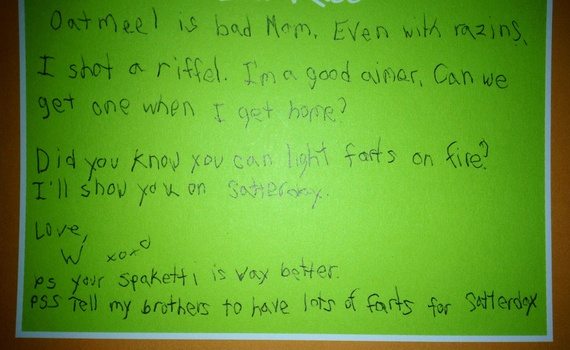 Oatmeel is bad Mom. Even with razins.
I shot a riffel. I'm a good aimer, Can we
get one when I get home?
Did you know you can light farts on fire?
I'll show you on Satterday.
Love,
W xoxo
ps your spaketti is way better.
PSS Tell my brothers to have lots of farts for Satterday